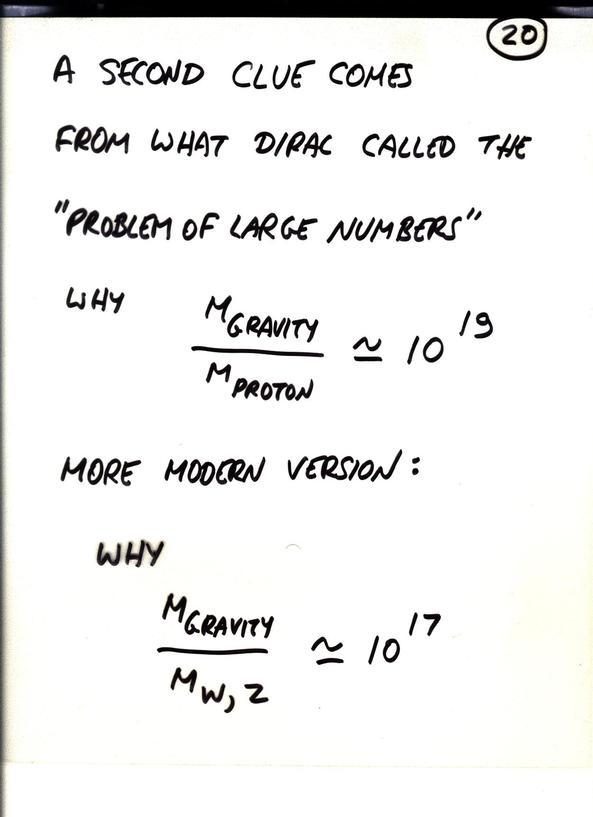 20
A SECOND CLUE COMES
FROM WHAT DIRAC CALLED THE
"PROBLEM OF LARGE NUMBERS"
WHY M_GRAVITY / M_PROTON ≃ 10^19
MORE MODERN VERSION:
WHY
M_GRAVITY / M_W, Z ≃ 10^17